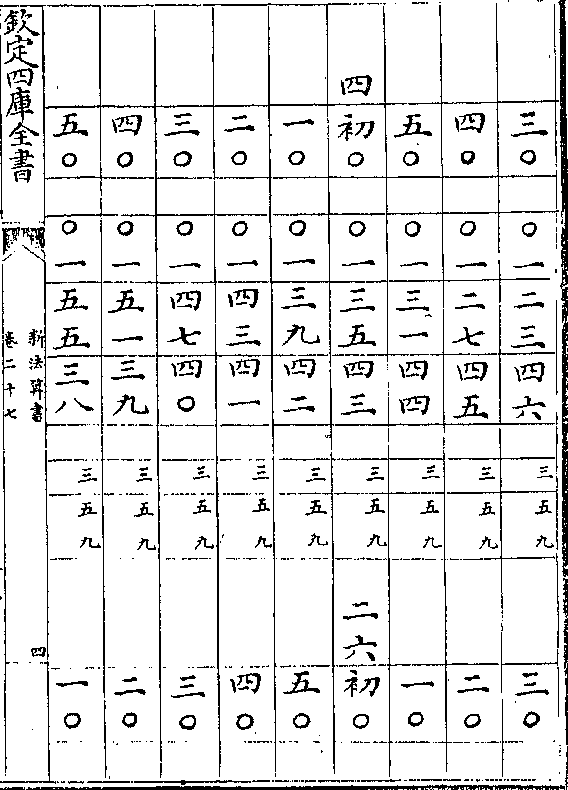 三〇 〇一 二三 四六 三 五九 三〇
四〇 〇一 二七 四五 三 五九 二〇
五〇 〇一 三一 四四 三 五九 一〇
四 初〇 〇一 三五 四三 三 五九 二六 初〇
一〇 〇一 三九 四二 三 五九 五〇
二〇 〇一 四三 四一 三 五九 四〇
三〇 〇一 四七 四〇 三 五九 三〇
四〇 〇一 五一 三九 三 五九 二〇
五〇 〇一 五五 三八 三 五九 一〇
欽定四庫全書
新法算書
卷二十七
四